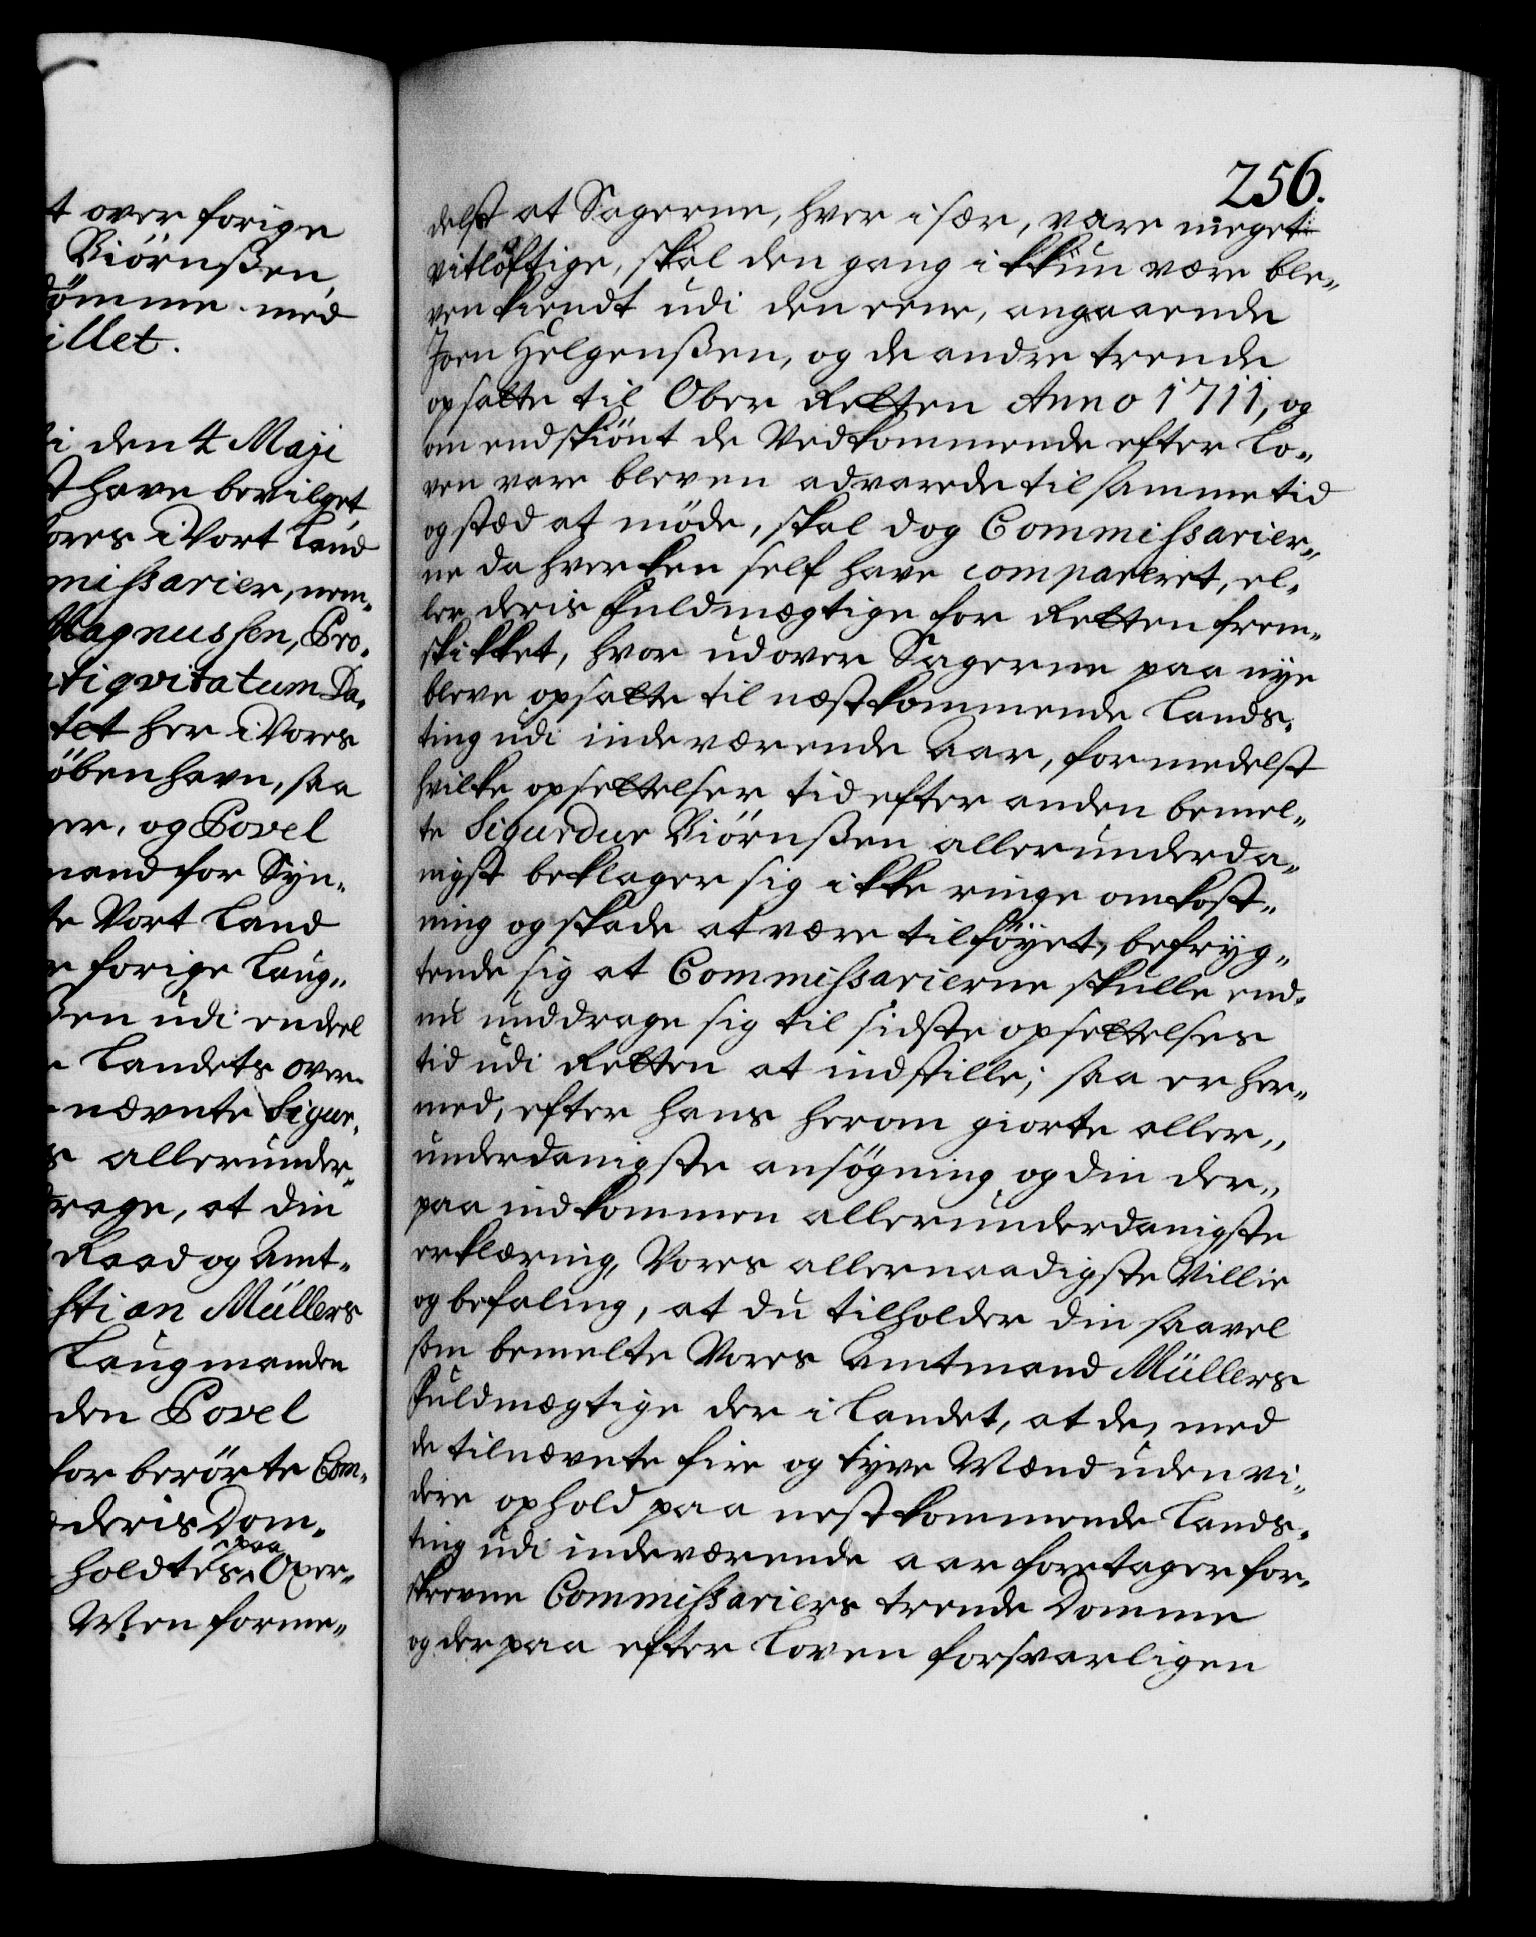 t over forige
Biörnßen,
dömme med
illet.
i den 4 Maji
st have bevilget
ores i Vort Land
missarier, nem„
Magnussen, Pro„
tiqvitatum Da„
tet her i Vores
öbenhavn, saa
er, og Povel
mand for Syn„
te Vort Land
forige Laug„
ßen udi endeel
Landets over
nævnte Sigur„
s allerunder„
drage, at din
Raad og Amt„
stian Müllers
Laugmanden
den Povel
for berörte Com„
deris Dom„
holdtes paa Oxer„
Men forme„
256.
delst at Sagerne, hver i sær, vare meget
vitlöftige, skal den gang i kkun være ble„
ven kiendt udi den eene, angaaende
Joen Helgenßen, og de andre trende
opsatte til Ober Retten Anno 1711, og
om endskiönt de Vedkommende efter Lo„
ven vare bleven advarede til samme tid
og stæd at møde, skal dog Commissarier„
ne da hverken self have compareret, el„
ler deris Fuldmægtige for Retten frem„
skikket, hvor udover Sagerne paa nye
bleve opsatte til næstkommende Lands„
ting udi indeværende Aar, formedelst
hvilke opsettelser tid efter anden bemel„
te Sigurdur Biörnßen allerunderda„
nigst beklager sig ikke ringe omkost„
ning og skade at være tilföyet, befryg„
tende sig at Commissarierne skulle end„
nu unddrage sig til sidste opsettelses
tid udi Retten at indstille; saa er her„
med, efter hans herom giorte aller„
underdanigste ansögning og din der„
paa indkommen allerunderdanigste
erklæring, Vores allernaadigste Villie
og befaling, at du tilholder din saavel
som bemelte Vores Amtmand Müllers
Fuldmægtige der i Landet, at de, med
de tilnævnte fire og tyve Mænd uden vi„
dere ophold paa nestkommende Lands„
ting udi indeværende aar foretager for„
skrevne Commissariers trende Domme
og derpaa efter Loven forsvarligen